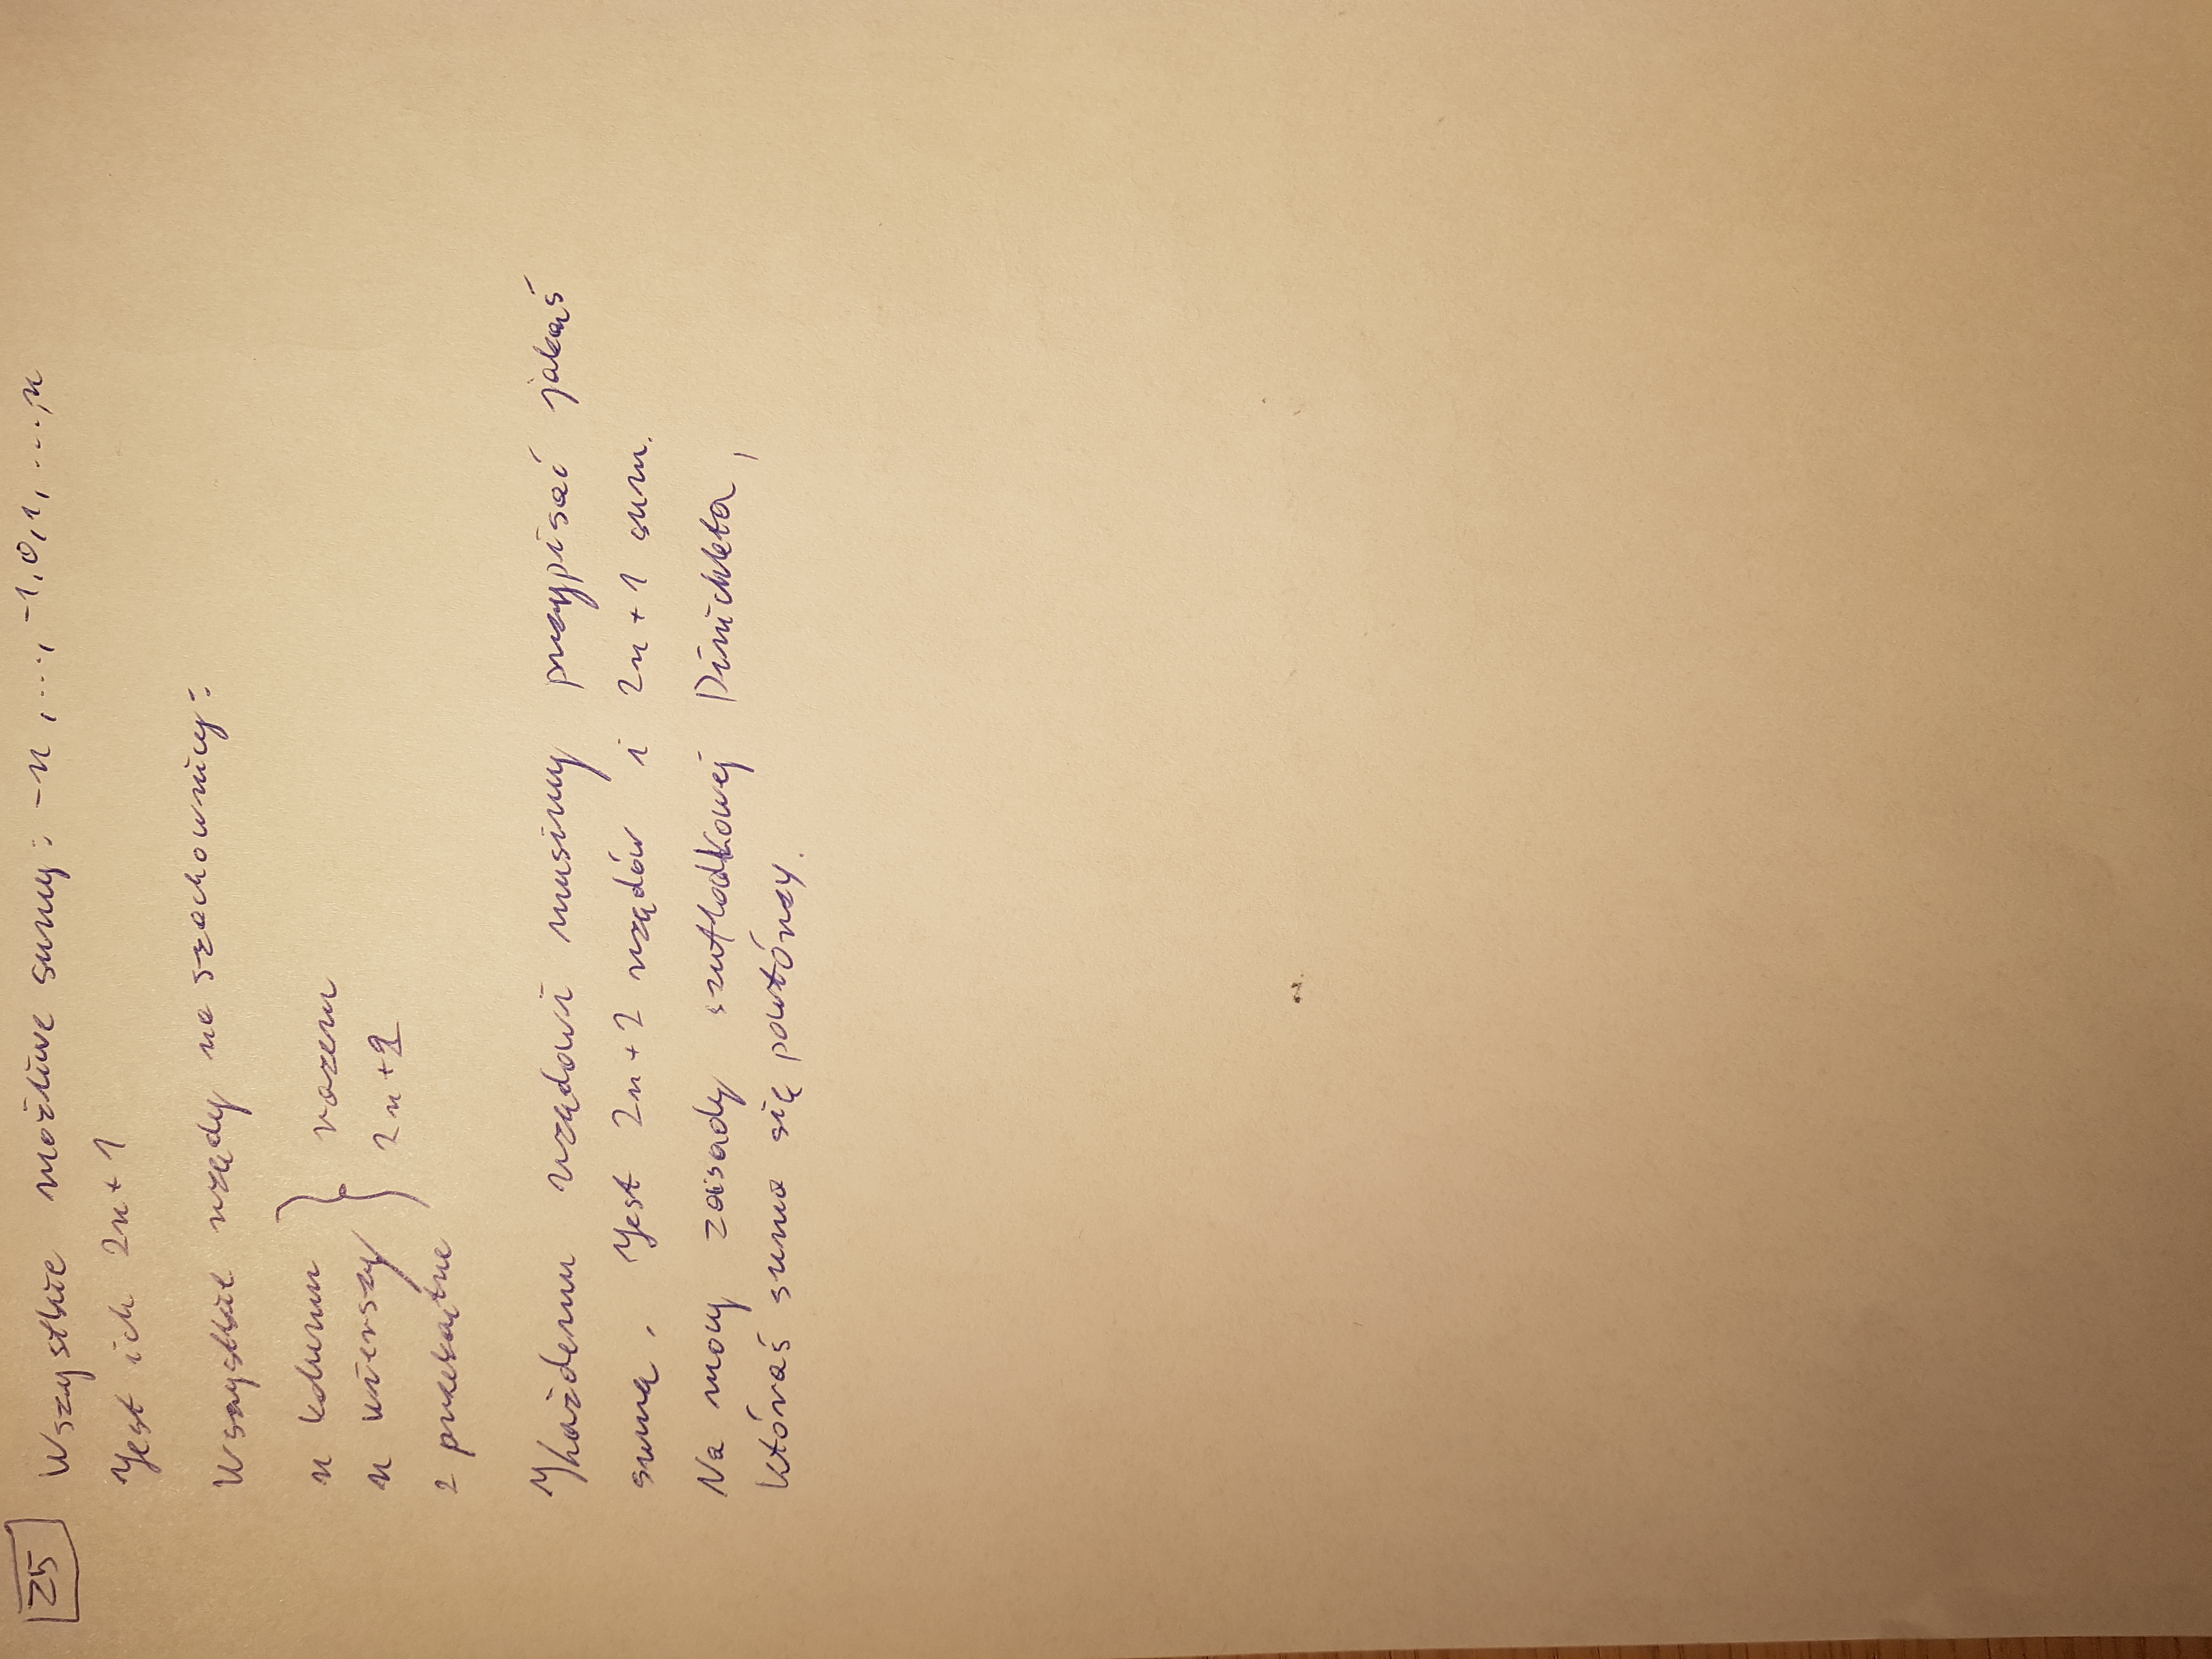 Z5
Wszystkie możliwe sumy: -n, ..., -1, 0, 1, ..., n
Jest ich 2n+1
Wszystkie rzędy na szachownicy:
n kolumn
n wierszy
2 przekątne
razem
2n+2
Każdemu rzędowi musimy przypisać jakąś
sumę. Jest 2n+2 rzędów i 2n+1 sum.
Na mocy zasady szufladkowej Dirichleta,
któraś suma się powtórzy.